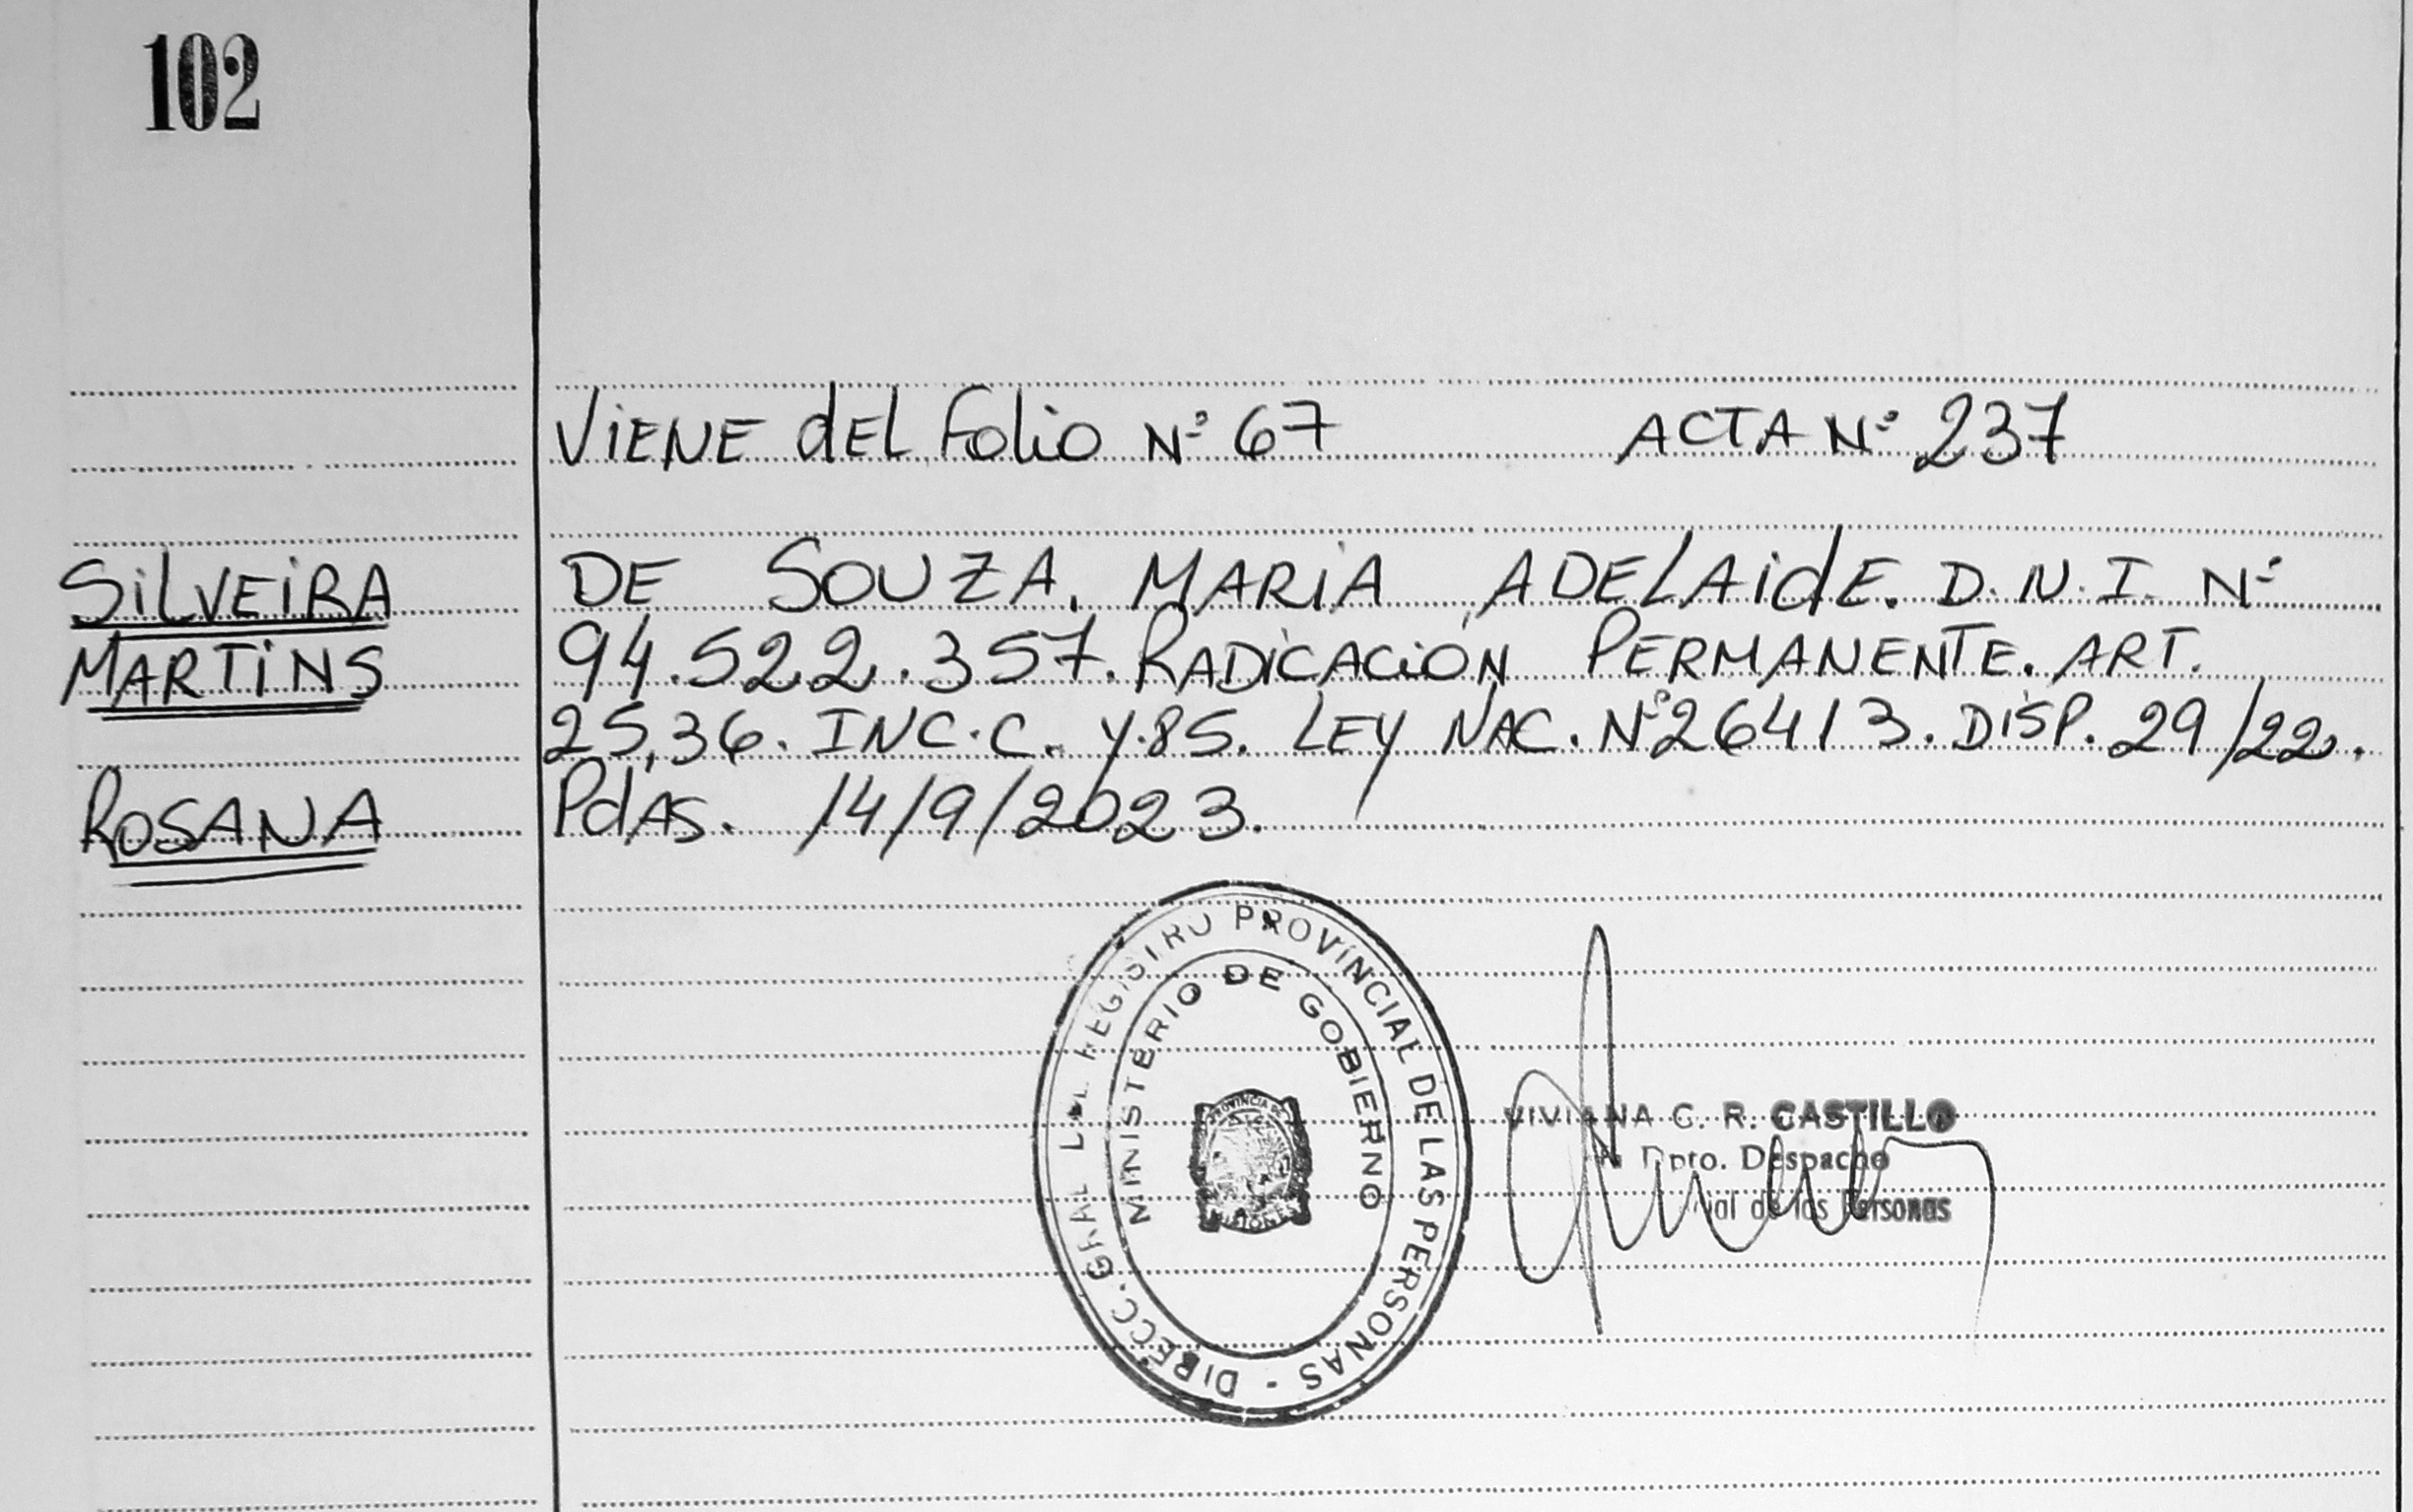 102
VIENE dEL Folio Nº 67 ACTA Nº 237
SILVEIRA
MARTINS
ROSANA
DE SOUZA, MARIA ADELAIdE. D.N.I. Nº
94.522.357. RADICACIÓN PERMANENTE. ART.
25,36. INC.C. Y.85. LEY NAC. Nº26413. DISP. 29/22.
PdAS. 14/9/2023.
DIRECC. GRAL DEL REGISTRO PROVINCIAL DE LAS PERSONAS -
MINISTERIO DE GOBIERNO
PROVINCIA DE
MISIONES
VIVIANA C. R. CASTILLO
Dpto. Despacho
de las Personas